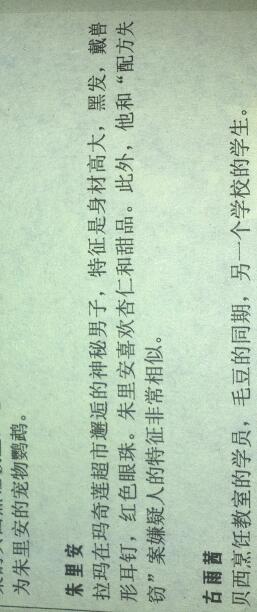 为朱里安的宠物鹦鹉。
朱里安
拉玛在玛奇莲超市邂逅的神秘男子，特征是身材高大，黑发，戴兽
形耳钉，红色眼珠。朱里安喜欢杏仁和甜品。此外，他和“配方失
窃”案嫌疑人的特征非常相似。
古雨茜
贝西烹饪教室的学员，毛豆的同期，另一个学校的学生。